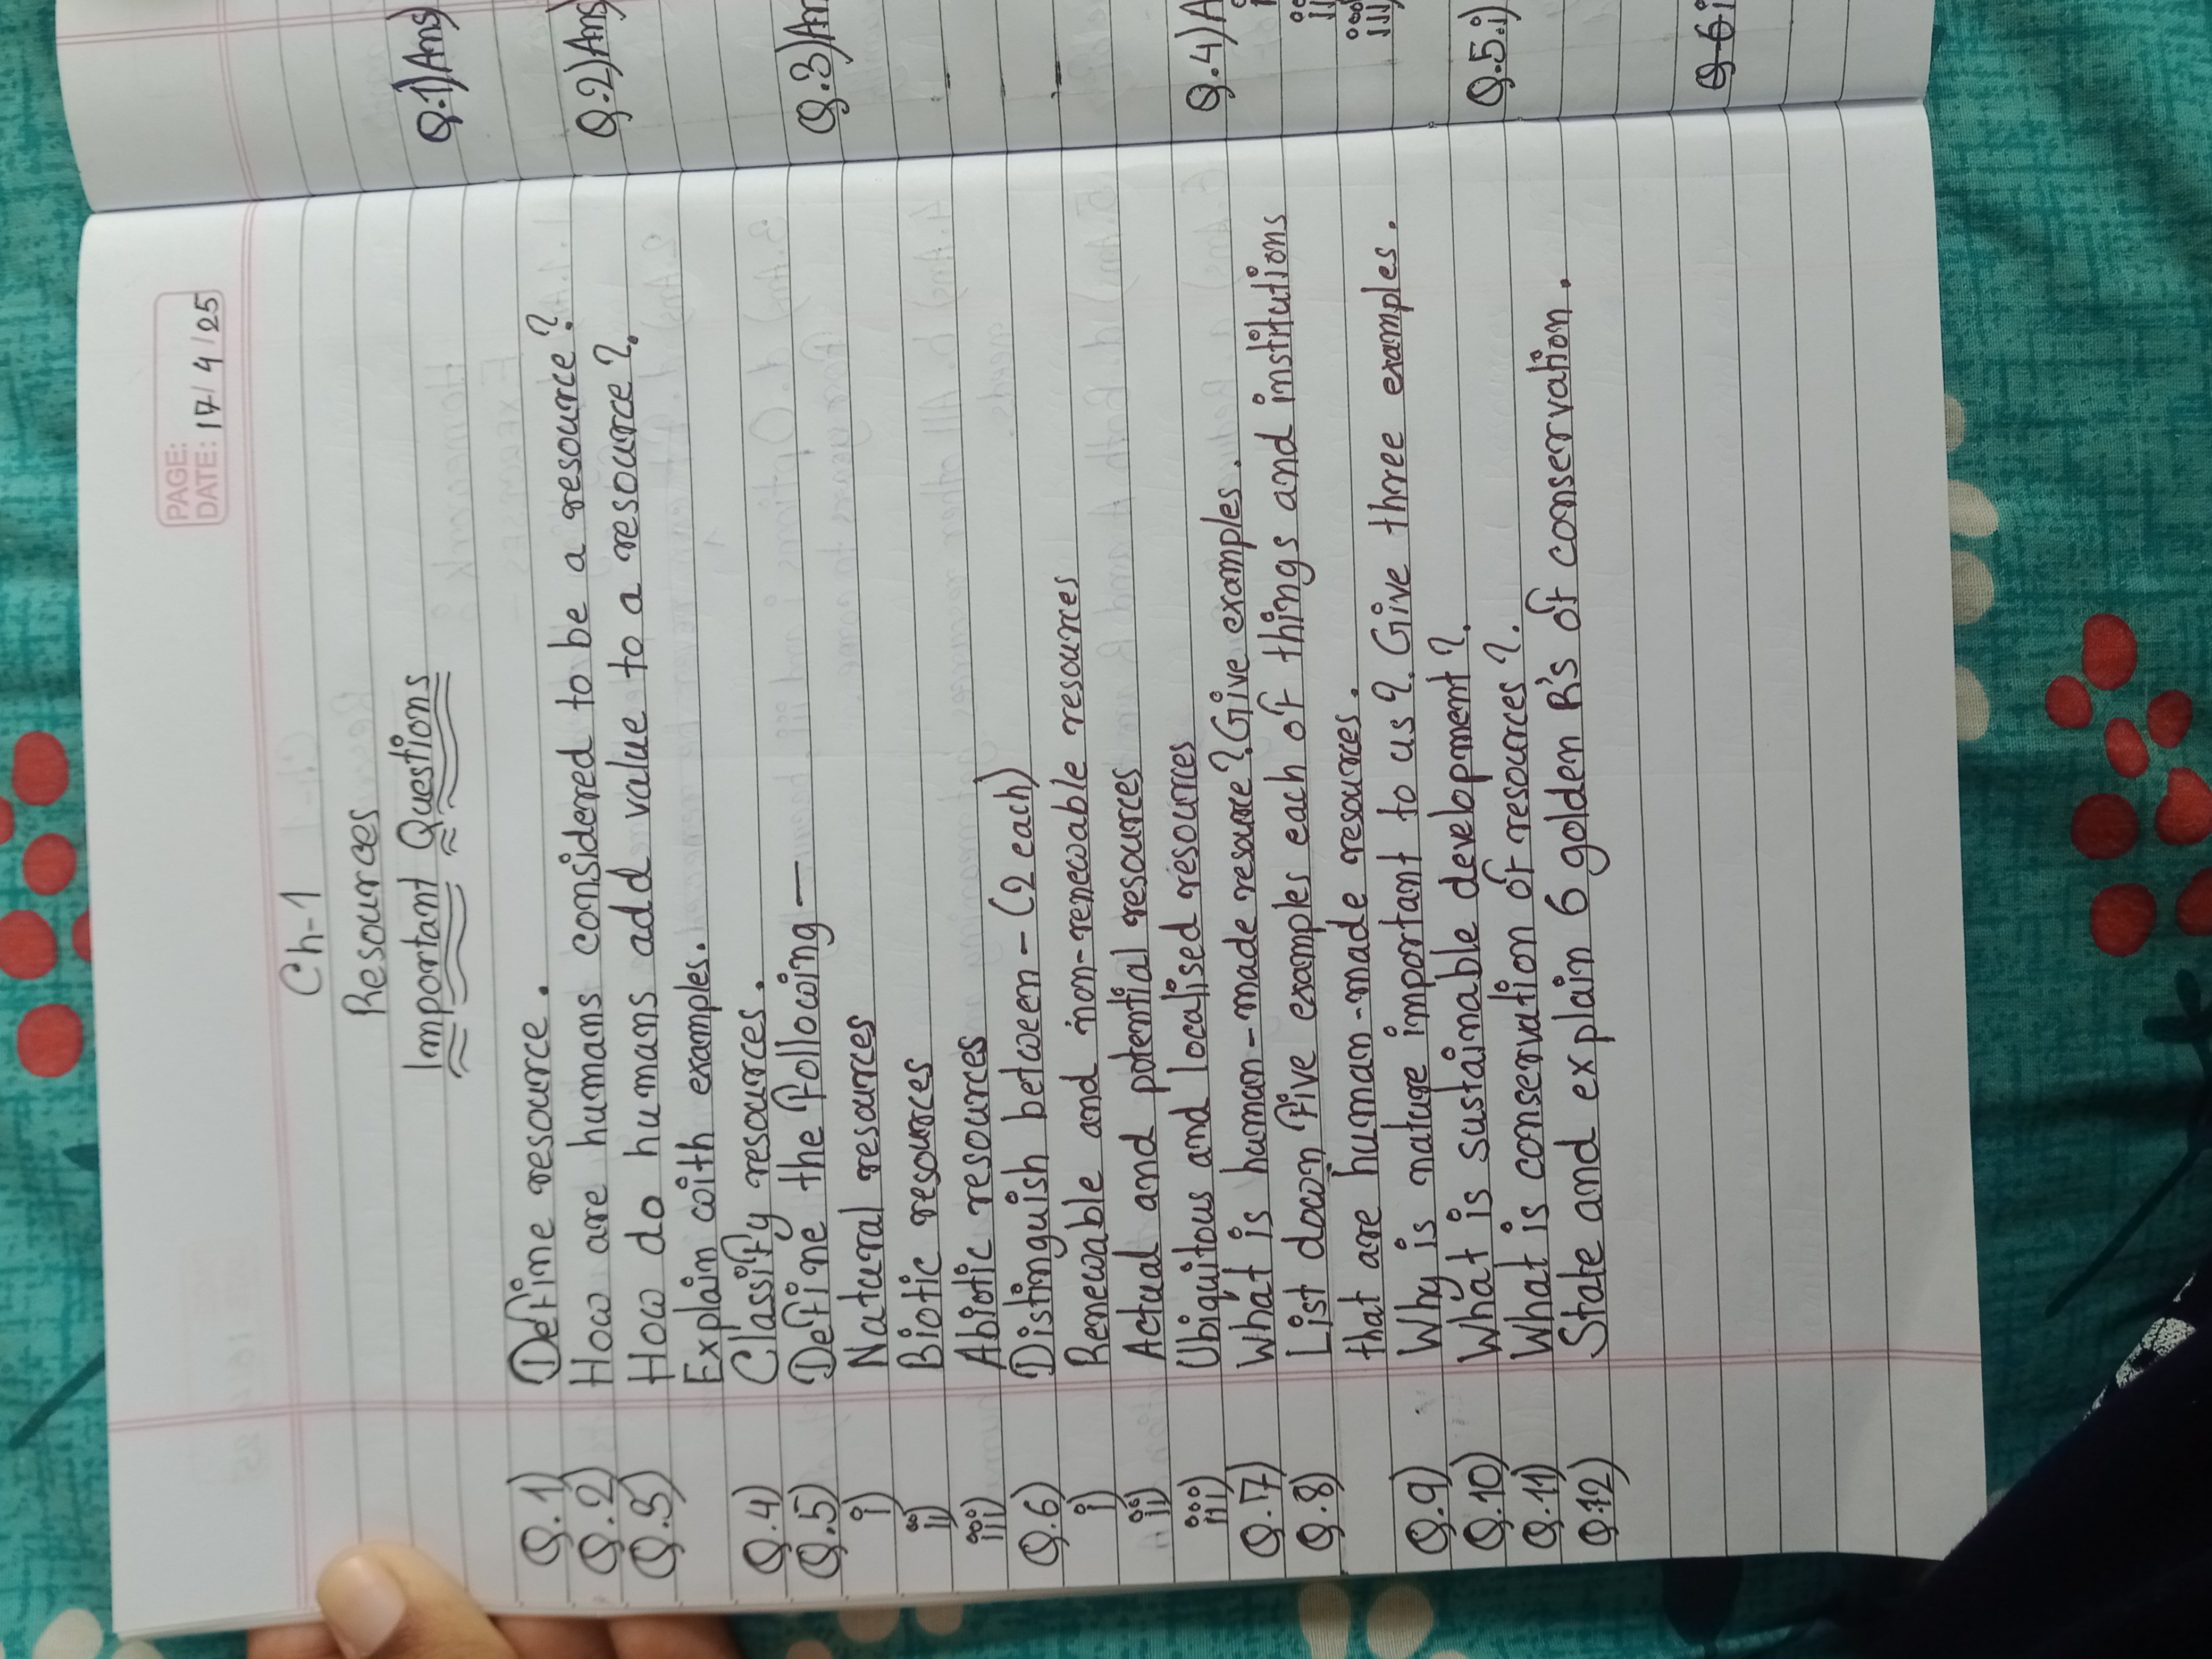 PAGE:
DATE: 17/4/25
Ch-1
Resources
Important Questions
Q.1) Define resource.
Q.2) How are humans considered to be a resource?
Q.3) How do humans add value to a resource?
Explain with examples.
Q.4) Classify resources.
Q.5) Define the following —
i) Natural resources
ii) Biotic resources
iii) Abiotic resources
Q.6) Distinguish between - (2 each)
i) Renewable and non-renewable resources
ii) Actual and potential resources
iii) Ubiquitous and localised resources
Q.7) What is human-made resource? Give examples.
Q.8) List down five examples each of things and institutions
that are human-made resources.
Q.9) Why is nature important to us? Give three examples.
Q.10) What is sustainable development?
Q.11) What is conservation of resources?
Q.12) State and explain 6 golden R's of conservation.
Q.1) Ans
Q.2) Ans
Q.3) An
Q.4) A
ii
iii)
Q.5.i)